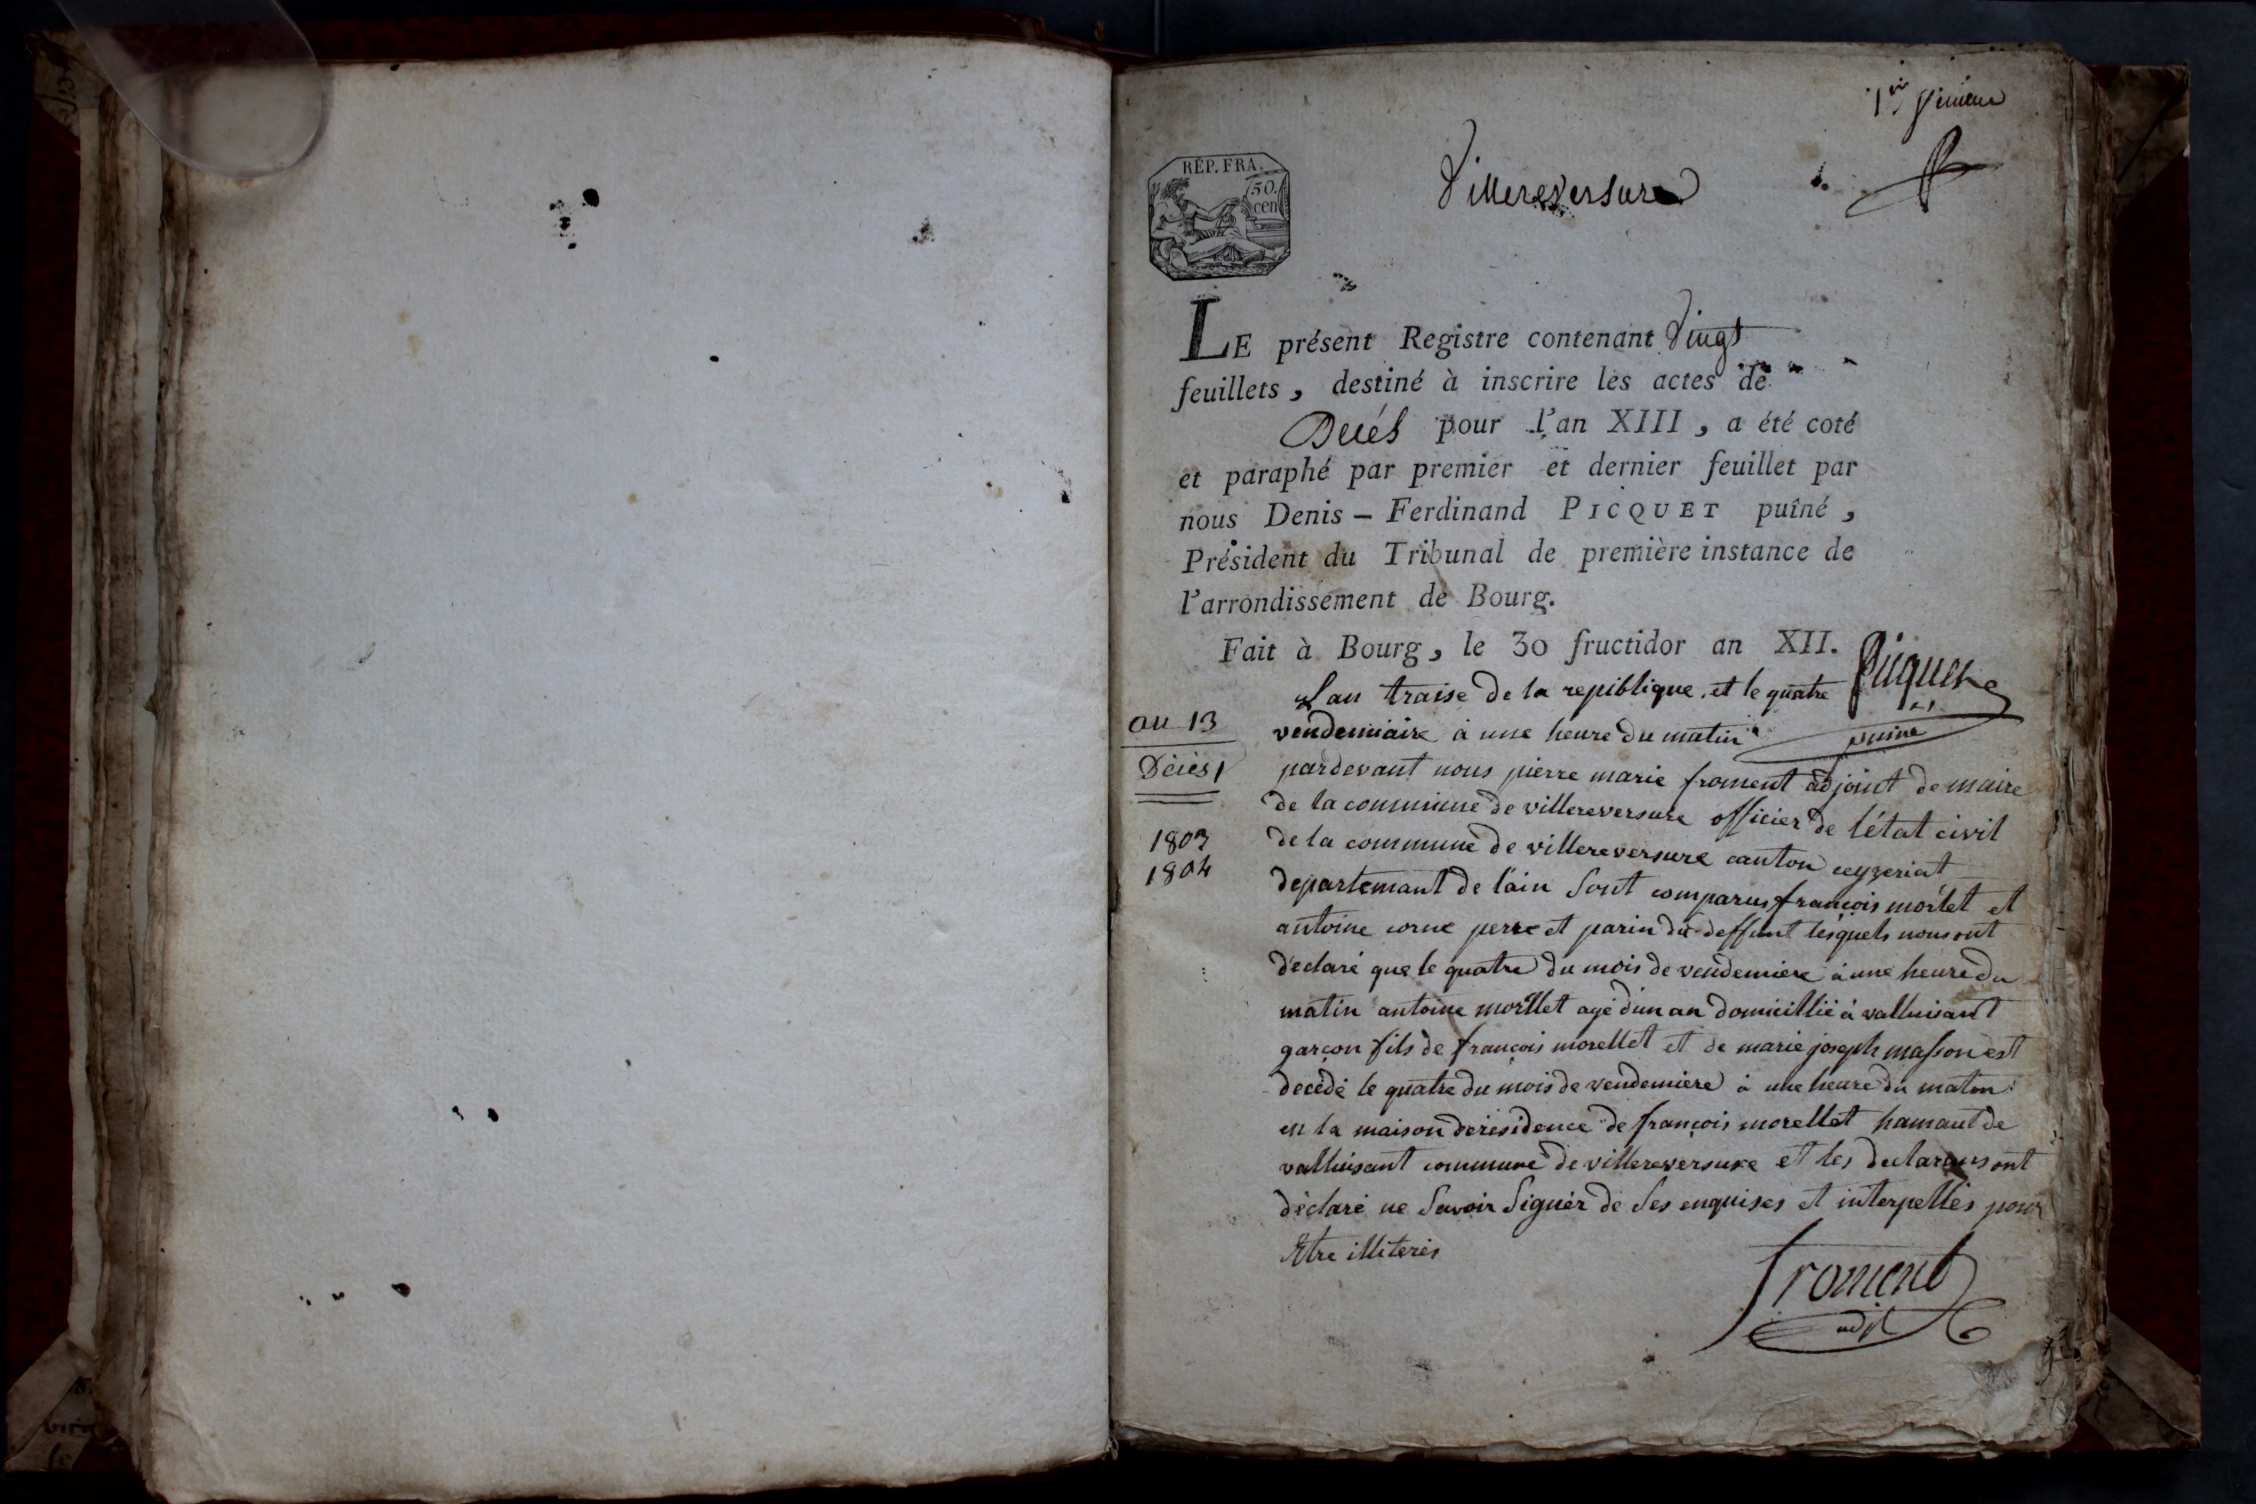 1er
Villereversure
RÉP. FRA.
50.
cen
LE présent Registre contenant Vingt
feuillets, destiné à inscrire les actes de
Décés pour l'an XIII, a été coté
et paraphé par premier et dernier feuillet par
nous Denis - Ferdinand PICQUET puîné,
Président du Tribunal de première instance de
l'arrondissement de Bourg.
Fait à Bourg, le 30 fructidor an XII.
Picquet
puiné
an 13
Décés
1803
1804
Lan traise de la repiblique et le quatre
vendemiaire à une heure du matin
pardevant nous pierre marie froment adjoint de maire
de la commune de villereversure officier de l'état civil
de la commune de villereversure canton ceyzeriat
departemant de l'ain sont comparus françois morlet et
antoine corne perre et parin du deffunt lesquels nous ont
déclaré que le quatre du mois de vendemiere à une heure du
matin antoine morllet agé d'un an domicillié à valluisant
garçon fils de françois morellet et de marie joseph masson est
decédé le quatre du mois de vendemiere à une heure du maton
en la maison de résidence de françois morellet hamaut de
valluisant commune de villereversure et les declarans ont
déclaré ne savoir signér de ses enquises et interpellés pour
Etre illiterés
froment
adjt